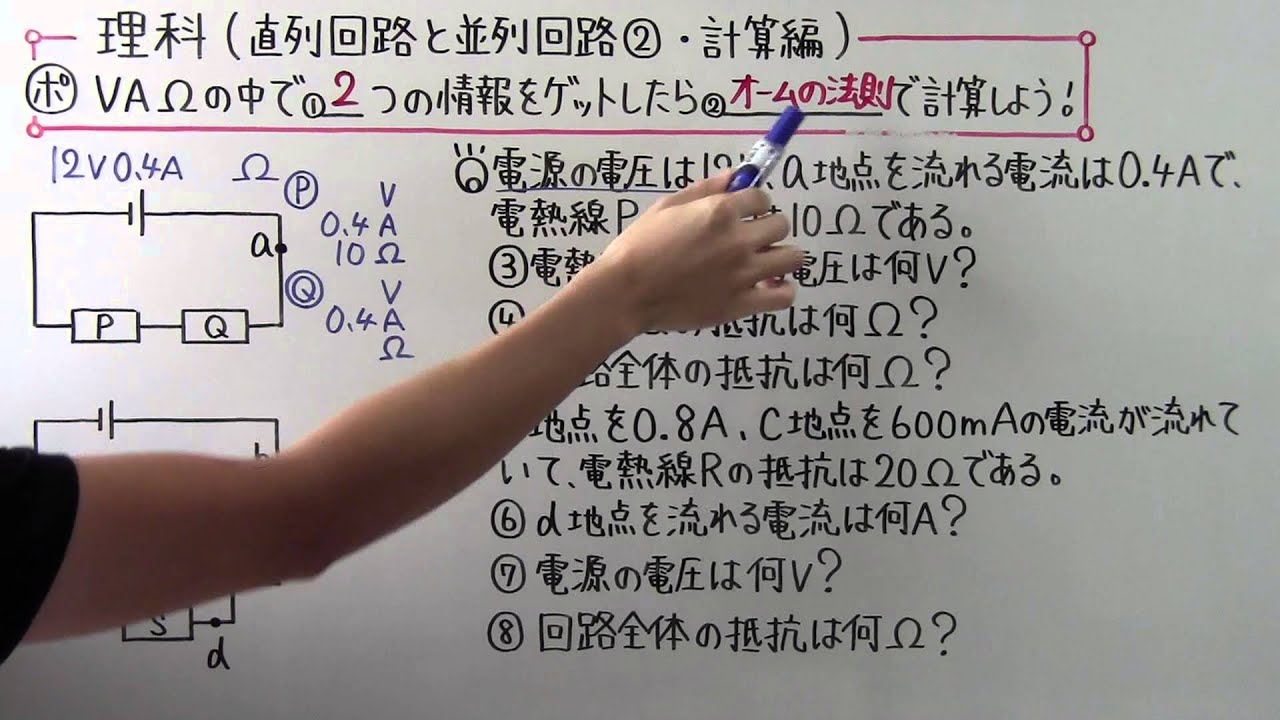 理科(直列回路と並列回路②・計算編)
ポ VAΩの中で①2つの情報をゲットしたら②オームの法則で計算しよう!
12V 0.4A Ω
P V
0.4A
10Ω
a
Q V
0.4A
Ω
P Q
電源の電圧は12、a地点を流れる電流は0.4Aで、
電熱線P は10Ωである。
③電熱 電圧は何V?
④ 抵抗は何Ω?
路全体の抵抗は何Ω?
地点を0.8A、C地点を600mAの電流が流れて
いて、電熱線Rの抵抗は20Ωである。
⑥d地点を流れる電流は何A?
⑦電源の電圧は何V?
⑧回路全体の抵抗は何Ω?
b
S
d